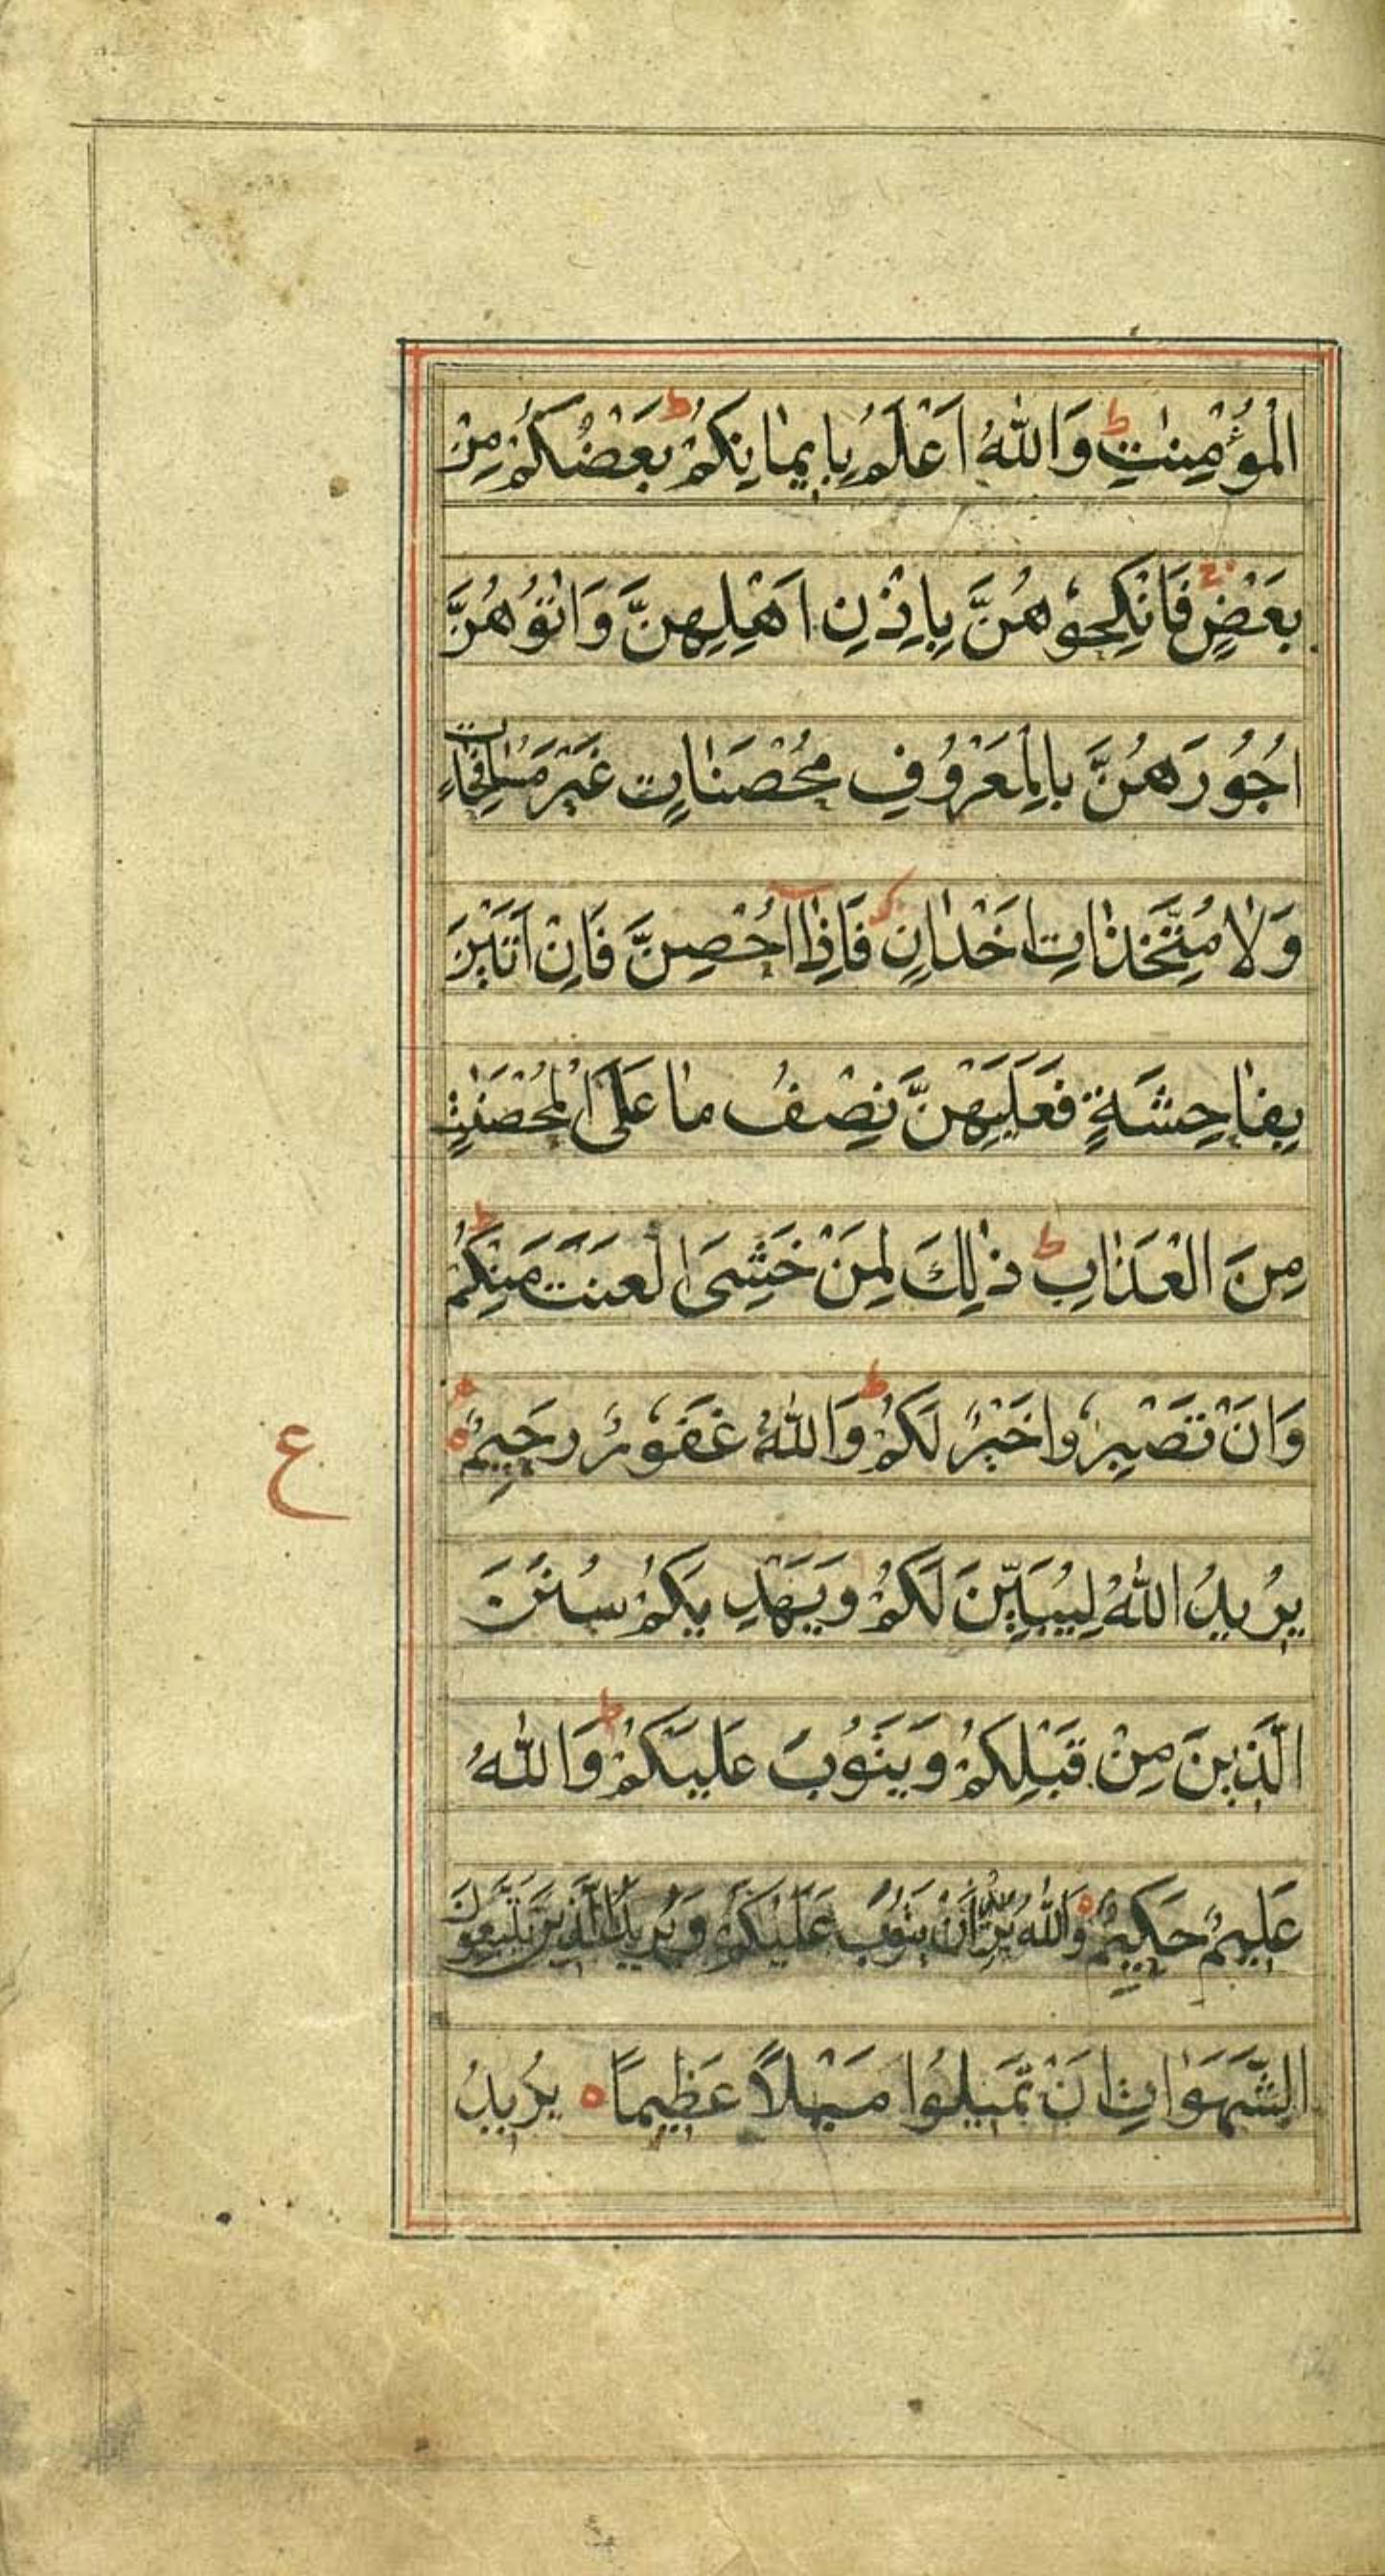 الْمُؤْمِنٰتِ ط وَاللّٰهُ اَعْلَمُ بِاِيمٰانِكُمْ ط بَعْضُكُمْ مِنْ
بَعْضٍ فَانْكِحُوهُنَّ بِاِذْنِ اَهْلِهِنَّ وَاٰتُوهُنَّ
اُجُورَهُنَّ بِالْمَعْرُوفِ مُحْصَنٰاتٍ غَيْرَ مُسٰافِحٰاتٍ
وَلٰا مُتَّخِذٰاتِ اَخْدٰانٍ فَاِذٰا اُحْصِنَّ فَاِنْ اَتَيْنَ
بِفٰاحِشَةٍ فَعَلَيْهِنَّ نِصْفُ مٰا عَلَى الْمُحْصَنٰتِ
مِنَ الْعَذٰابِ ط ذٰلِكَ لِمَنْ خَشِىَ الْعَنَتَ مِنْكُمْ ط
وَاَنْ تَصْبِرُوا خَيْرٌ لَكُمْ ط وَاللّٰهُ غَفُورٌ رَحِيمٌ ه
ع
يُرِيدُ اللّٰهُ لِيُبَيِّنَ لَكُمْ وَيَهْدِيَكُمْ سُنَنَ
الَّذِينَ مِنْ قَبْلِكُمْ وَيَتُوبَ عَلَيْكُمْ ط وَاللّٰهُ
عَلِيمٌ حَكِيمٌ ه وَاللّٰهُ يُرِيدُ اَنْ يَتُوبَ عَلَيْكُمْ وَيُرِيدُ الَّذِينَ يَتَّبِعُونَ
الشَّهَوٰاتِ اَنْ تَمِيلُوا مَيْلاً عَظِيمًا ه يُرِيدُ